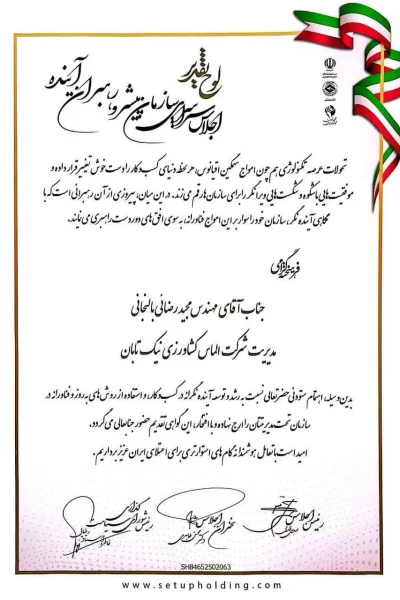 لوح تقدیر
اجلاس سراسری سازمان پیشرو، رهبران آینده
تحولات عرصه تکنولوژی هم چون امواج سهمگین اقیانوس، هر لحظه دنیای کسب و کار را دستخوش تغییر قرار داده و
موفقیت هایی باشکوه و شکست هایی ویرانگر را برای سازمان ها رقم می زند. در این میان، پیروزی از آن رهبرانی است که با
نگاهی آینده نگر، سازمان خود را سوار بر این امواج فناورانه، به سوی افق های دوردست راهبری می نمایند.
فرهیخته گرامی
جناب آقای مهندس مجید رضائی بالنجانی
مدیریت شرکت الماس کشاورزی نیک تابان
بدین وسیله، اهتمام ستودنی حضرتعالی نسبت به رشد و توسعه آینده نگرانه در کسب و کار، و استفاده از روش های به روز و فناورانه در
سازمان تحت مدیریتتان را ارج نهاده و با افتخار، این گواهی تقدیم حضور جنابعالی می گردد.
امید است با تعامل هوشمندانه گام های استوارتری برای اعتلای ایران عزیز برداریم.
رئیس اجلاس
سخنران اجلاس
رئیس شورای سیاست گذاری
SH84652502063
www.setupholding.com